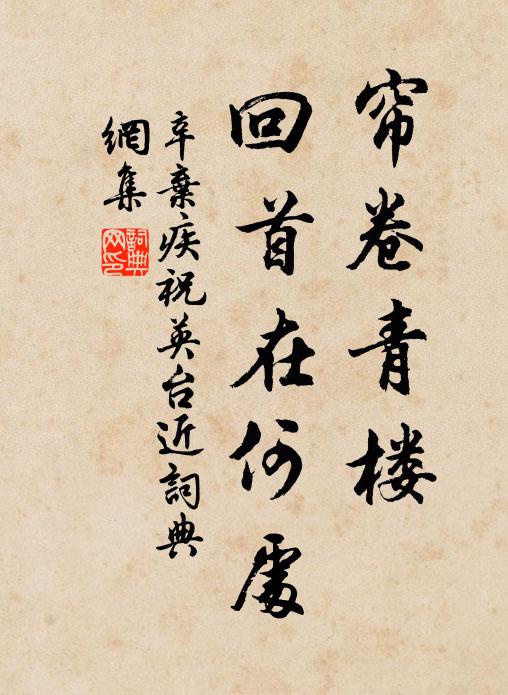 帘卷青楼
回首在何處
辛棄疾祝英台近詞典
網集
詞典
网印